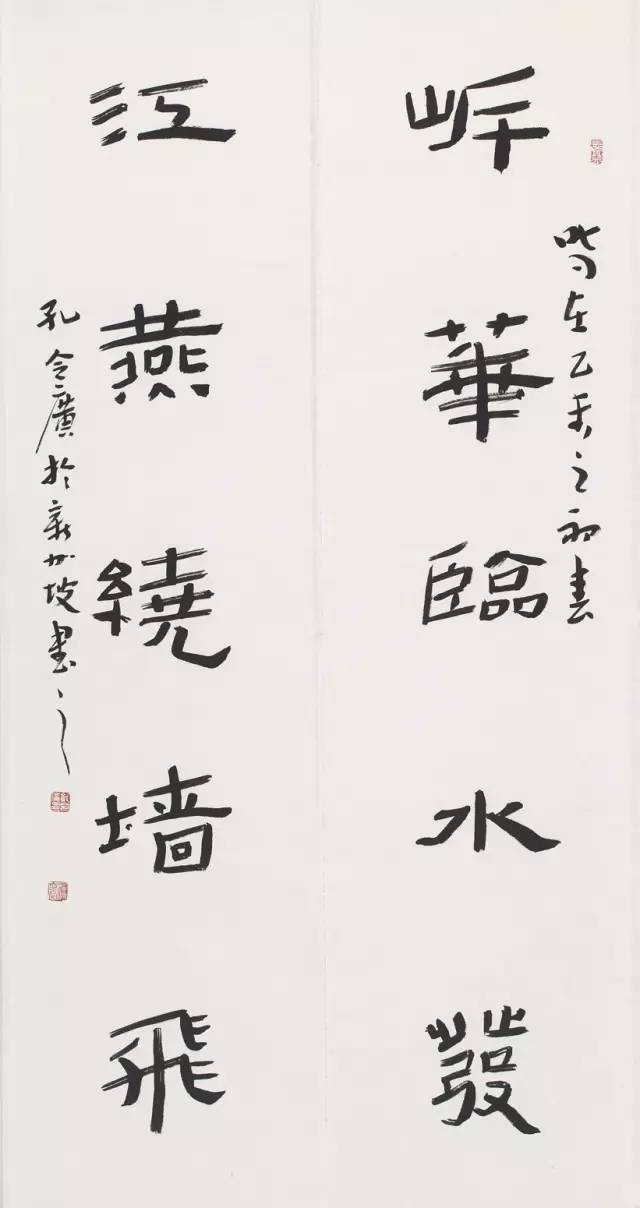 岸華臨水發
時在乙未之初春
江燕繞墙飛
孔令廣於新加坡書之